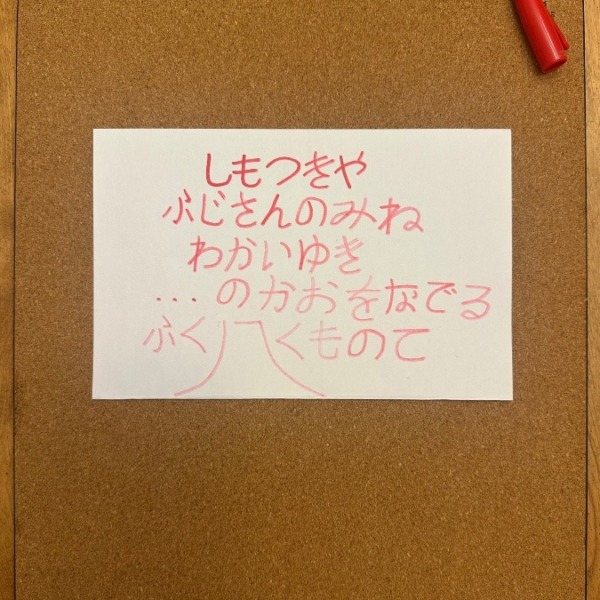 しもつきや
ふじさんのみね
わかいゆき
...のかおをなでる
ふく くものて